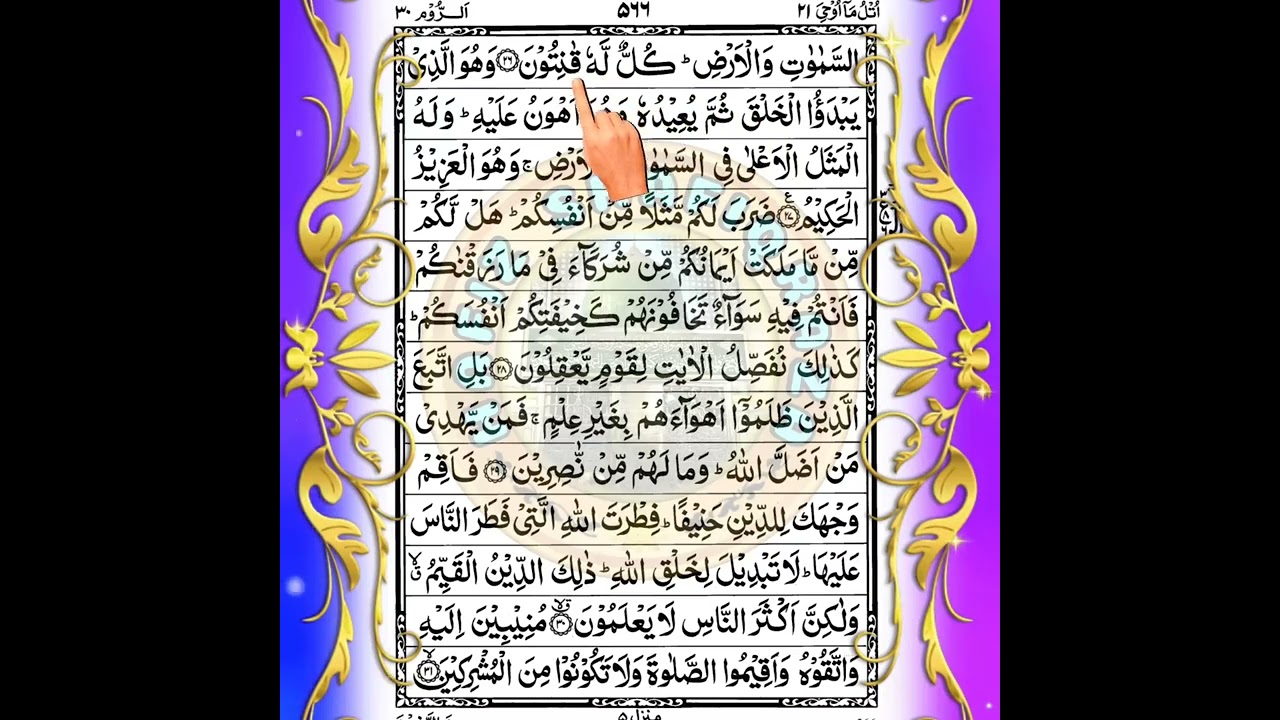 اُتْلُ مَآ اُوْحِیَ ۲۱
۵۶۶
اَلرُّوْم ۳۰
السَّمٰوٰتِ وَالْاَرْضِ ؕ كُلٌّ لَّهٗ قٰنِتُوْنَ ۲۶ وَهُوَ الَّذِیْ
یَبْدَؤُا الْخَلْقَ ثُمَّ یُعِیْدُهٗ وَهُوَ اَهْوَنُ عَلَیْهِ ؕ وَلَهُ
الْمَثَلُ الْاَعْلٰی فِی السَّمٰوٰتِ وَالْاَرْضِ ۚ وَهُوَ الْعَزِیْزُ
الْحَكِیْمُ ۲۷ ضَرَبَ لَكُمْ مَّثَلًا مِّنْ اَنْفُسِكُمْ ؕ هَلْ لَّكُمْ
مِّنْ مَّا مَلَكَتْ اَیْمَانُكُمْ مِّنْ شُرَكَآءَ فِیْ مَا رَزَقْنٰكُمْ
فَاَنْتُمْ فِیْهِ سَوَآءٌ تَخَافُوْنَهُمْ كَخِیْفَتِكُمْ اَنْفُسَكُمْ ؕ
كَذٰلِكَ نُفَصِّلُ الْاٰیٰتِ لِقَوْمٍ یَّعْقِلُوْنَ ۲۸ بَلِ اتَّبَعَ
الَّذِیْنَ ظَلَمُوْۤا اَهْوَآءَهُمْ بِغَیْرِ عِلْمٍ ۚ فَمَنْ یَّهْدِیْ
مَنْ اَضَلَّ اللّٰهُ ؕ وَمَا لَهُمْ مِّنْ نّٰصِرِیْنَ ۲۹ فَاَقِمْ
وَجْهَكَ لِلدِّیْنِ حَنِیْفًا ؕ فِطْرَتَ اللّٰهِ الَّتِیْ فَطَرَ النَّاسَ
عَلَیْهَا ؕ لَا تَبْدِیْلَ لِخَلْقِ اللّٰهِ ؕ ذٰلِكَ الدِّیْنُ الْقَیِّمُ ۙ
وَلٰكِنَّ اَكْثَرَ النَّاسِ لَا یَعْلَمُوْنَ ۳۰ مُنِیْبِیْنَ اِلَیْهِ
وَاتَّقُوْهُ وَاَقِیْمُوا الصَّلٰوةَ وَلَا تَكُوْنُوْا مِنَ الْمُشْرِكِیْنَ ۳۱
منزل ۵